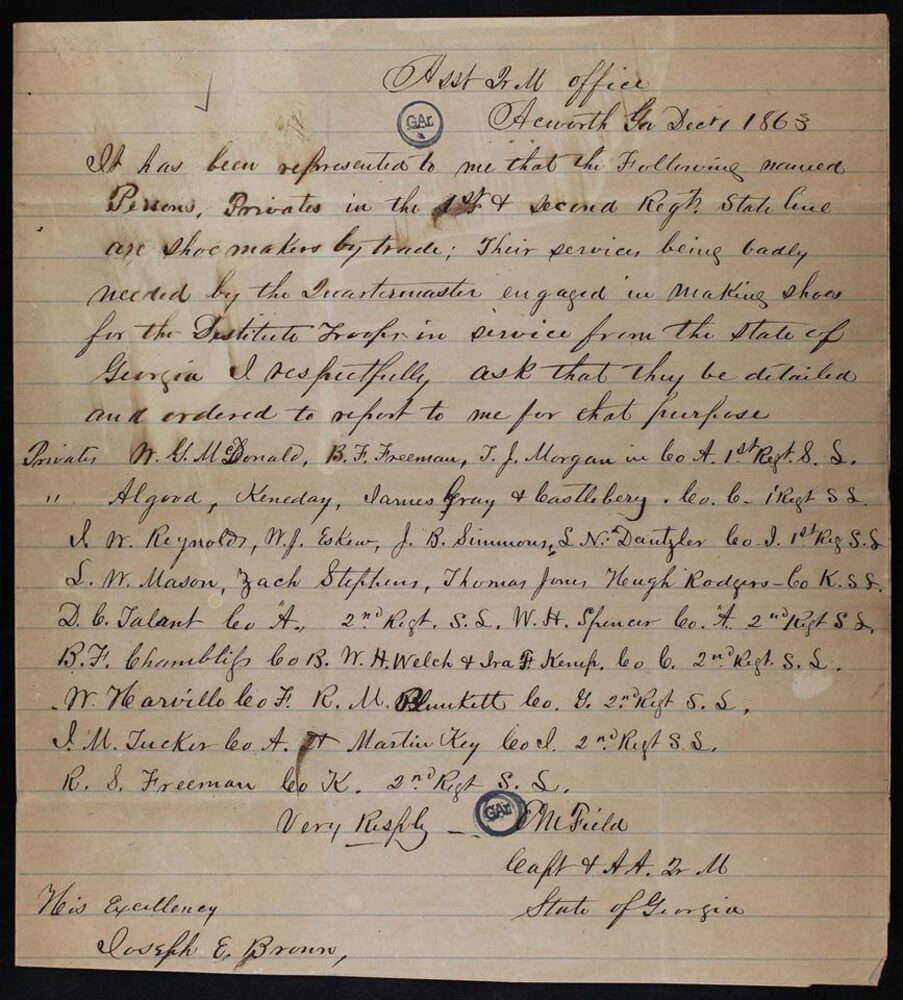 Asst Qr M office
GAr
Acworth Ga Dec 1 1863
It has been represented to me that the Following named
Persons, Privates in the 1st & second Regt. State line
are shoe makers by trade; Their services being badly
needed by the Quartermaster engaged in making shoes
for the Destitute Troops in service from the State of
Georgia I respectfully ask that they be detailed
and ordered to report to me for that purpose
Privates W. G. McDonald, B. F. Freeman, T. J. Morgan in Co A. 1st Regt. S. L.
" Algood, Keneday, James Gray & Castlebery. Co. C- 1 Regt S L
J. W. Reynolds, W. J. Eskew, J. B. Simmons, L N. Dantzler Co. I. 1st Reg S. L
L. W. Mason, Zach Stephens, Thomas Jones Heugh Rodgers - Co K. S L.
D. C. Talant Co "A., 2nd Regt. S. L. W. H. Spencer Co. "A. 2nd Regt S L,
B. F. Chambliss Co B. W. H. Welch & Ira F. Kemp. Co C. 2nd Regt. S. L.
W. Harville Co F. R. M. Plunkett Co. G. 2nd Regt S. L,
J. M. Tucker Co A. Martin Key Co I. 2nd Regt S. L,
R. S. Freeman Co K. 2nd Regt S. L.
Very Respfly - GAr Field
Capt & A A. Qr M
His Excellency State of Georgia
Joseph E. Brown,